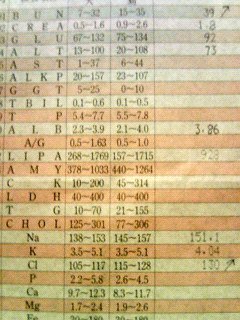 B U N 7~32 15~35 39 ↗
C R E A 0.5~1.6 0.9~2.6 1.8
G L U 67~132 75~134 92
A L T 13~100 20~108 73
A S T 1~37 6~44
A L K P 20~157 23~107
G G T 5~25 0~10
T B I L 0.1~0.6 0.1~0.5
T P 5.4~7.7 5.5~7.8
A L B 2.3~3.9 2.1~4.0 3.86
A/G 0.5~1.63 0.5~1.0
L I P A 268~1769 157~1715 928
A M Y 378~1033 440~1264
C K 10~200 45~314
L D H 40~400 40~400
T G 10~70 21~155
C H O L 125~301 77~306
Na 138~153 145~157 151.1
K 3.5~5.1 3.5~5.1 4.04
Cl 105~117 115~128 113.0 ↗
P 2.2~5.8 2.6~4.5
Ca 9.7~12.3 8.3~11.7
Mg 1.7~2.4 1.9~2.6